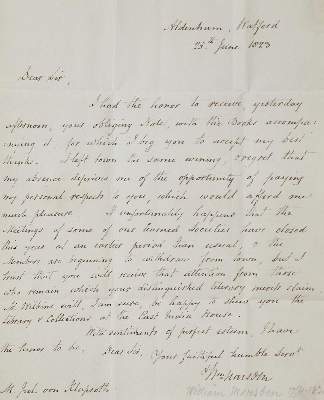 Aldenham, Watford
25th June 1823
Dear Sir,
I had the honor to receive, yesterday
afternoon, your obliging Note, with the Books accompa-
nying it, for which I beg you to accept my best
thanks. I left town the same evening, & regret that
my absence deprives me of the opportunity of paying
my personal respects to you, which would afford me
much pleasure. It unfortunately happens that the
Meetings of some of our learned Societies have closed
this year at an earlier period than usual, & the
Members are beginning to withdraw from town, but I
trust that you will receive that attention from those
who remain which your distinguished literary merits claim.
Mr Wilkins will, I am sure, be happy to shew you the
Library & Collections at the East India House.
With sentiments of perfect esteem, I have
the honor to be, Dear Sir, Your faithful humble Servt
Wm Marsden
M. Jul. von Klaproth
William Marsden